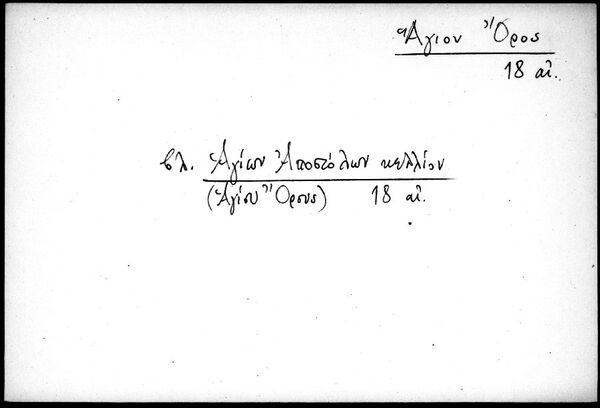 Ἅγιον Ὄρος
18 αἰ.
βλ. Ἁγίων Ἀποστόλων κελλίον
(Ἁγίου Ὄρους) 18 αἰ.